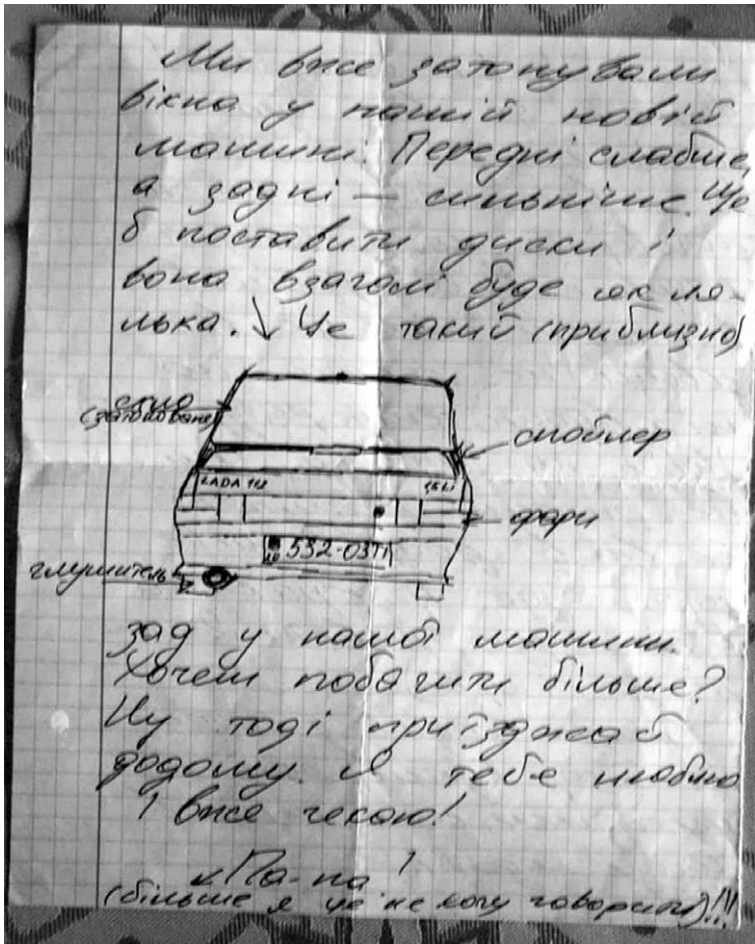 Ми вже затонували
вікна у нашій новій
машині. Передні слабше,
а задні — сильніше. Ще
б поставити диски і
вона взагалі буде як ля-
лька. ↓ Це такий (приблизно)
скло
(затоноване)
спойлер
LADA 112
1,5 Li
фари
532-03ТІ
глушитель
зад у нашої машини.
Хочеш побачити більше?
Ну тоді приїзджай
додому. Я тебе люблю
і вже чекаю!
"Па-па"
(більше я ще не могу говорити)!!!